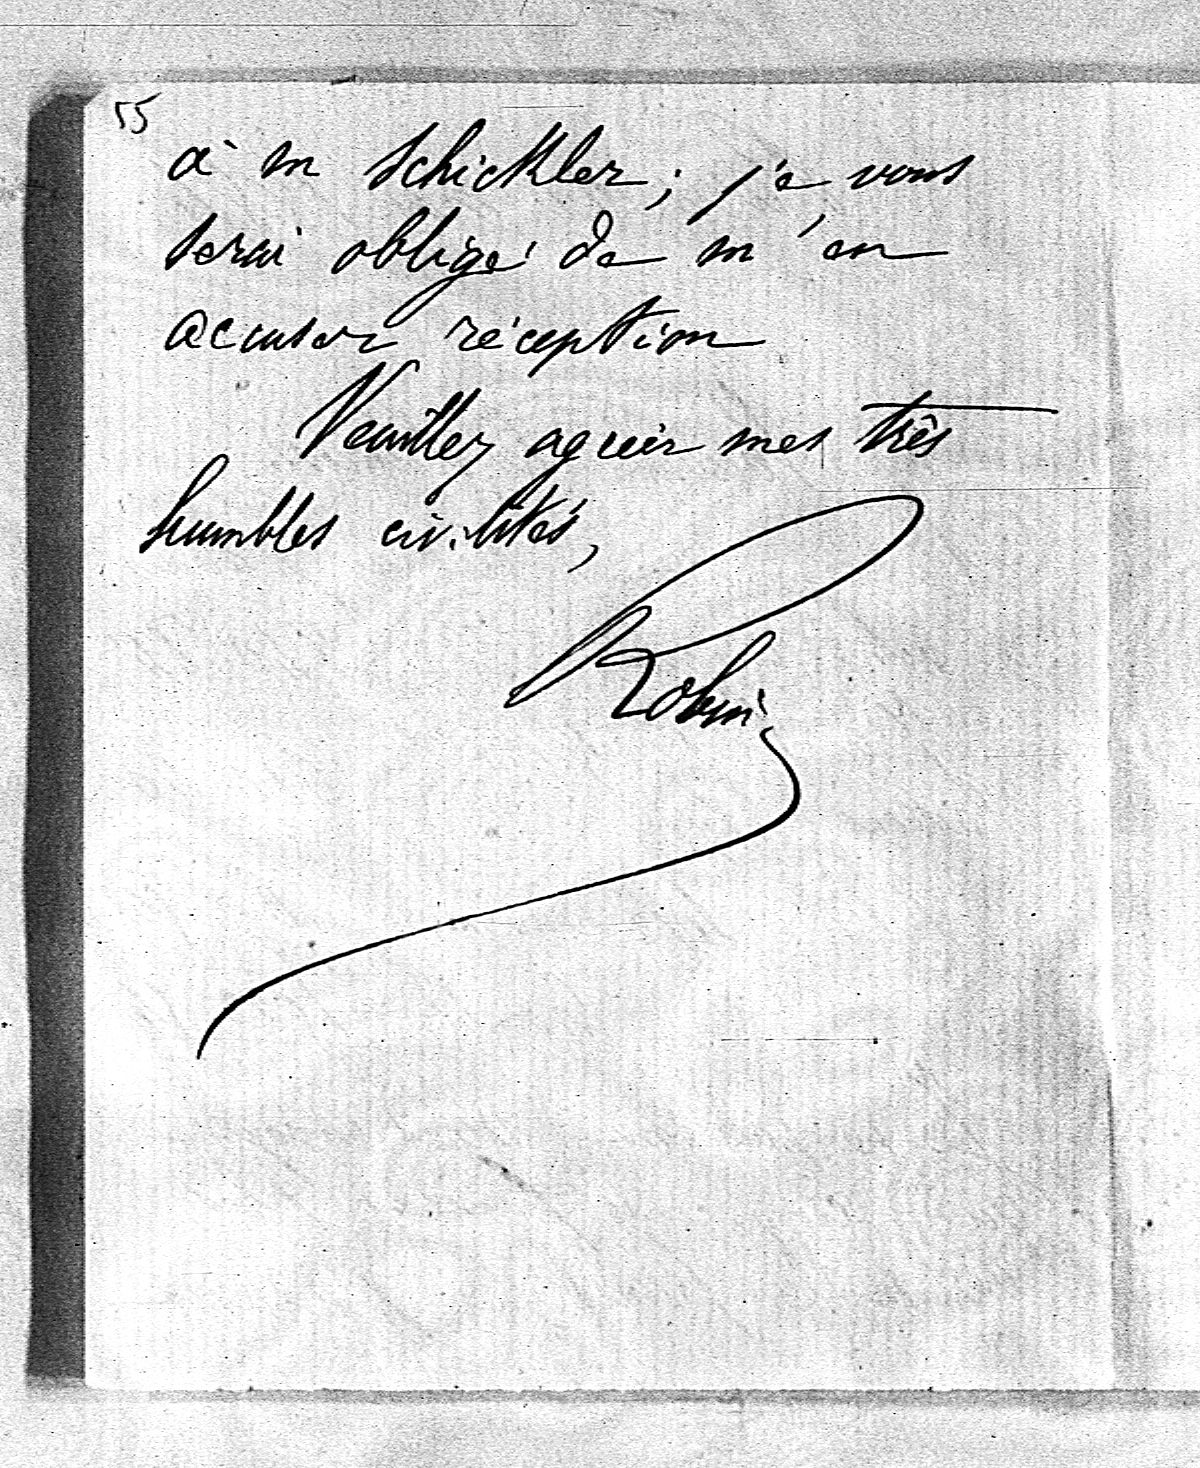 55
à m Schickler ; je vous
serai obligé de m'en
accuser réception
Veuillez agréer mes très
humbles civilités,
Robin